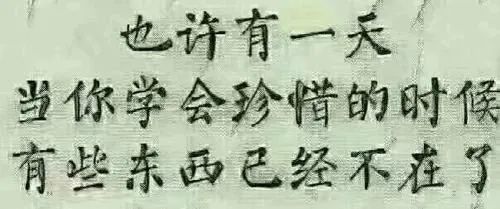 也许有一天
当你学会珍惜的时候
有些东西已经不在了